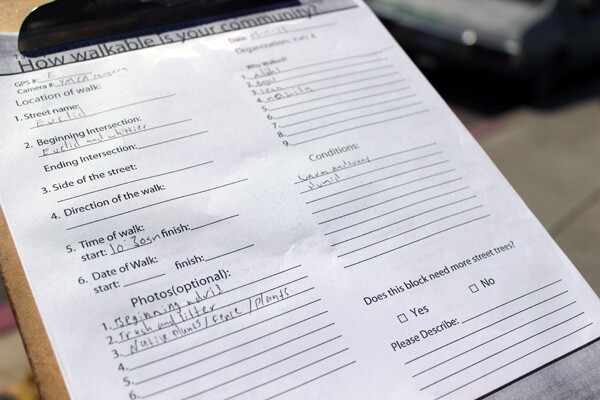 How walkable is your community?
GPS #: E
Camera #: YMCA
Location of walk:
1. Street name:
Euclid
2. Beginning Intersection:
Euclid and Whittier
Ending Intersection:
3. Side of the street:
4. Direction of the walk:
5. Time of walk:
start: 10:30am finish:
6. Date of Walk:
start: finish:
Photos(optional):
1. Beginning
2. Trash and litter
3. Native plants/Fence/plants
4.
5.
6.
Date:
Organization: YMCA
Who Walked?
1.
2.
3.
4.
5.
6.
7.
8.
9.
Conditions:
warm and sunny
humid
Does this block need more street trees?
☐ Yes ☐ No
Please Describe: